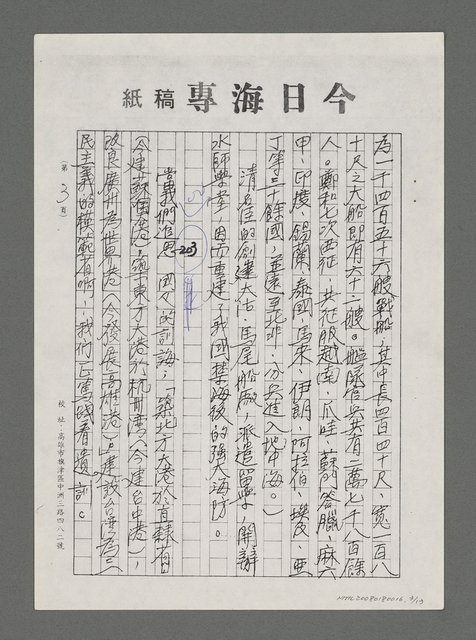 今日海專稿紙
為一千四百五十六艘戰船，其中長四百四十尺、寬一百八
十尺之大船即有六十二艘。艦隊官兵共有二萬七千八百餘
人。鄭和七次西征，共征服越南、爪哇、蘇門答臘、麻六
甲、印度、錫蘭、泰國、馬來、伊朗、阿拉伯、埃及、亞
丁等三十餘國，並遠至北非，分兵進入地中海。」
清左侯的創建大沽、馬尾船廠，齊造習學，開辦
水師學堂，因而重建了我國禁海後的強大海防。
203
當我們追思 國父的訓誨，「築北方大港於直隸省」
（今建蘇澳港），築東方大港於杭州灣（今建台中港），
改良廣州為世界港（今發展高雄港）。」建設台灣為三
民主義的模範省時，我們正篤踐着遺訓。
（第3頁）
校址：高雄市旗津區中洲三路四八二號
NMTL20080180016. 3/13